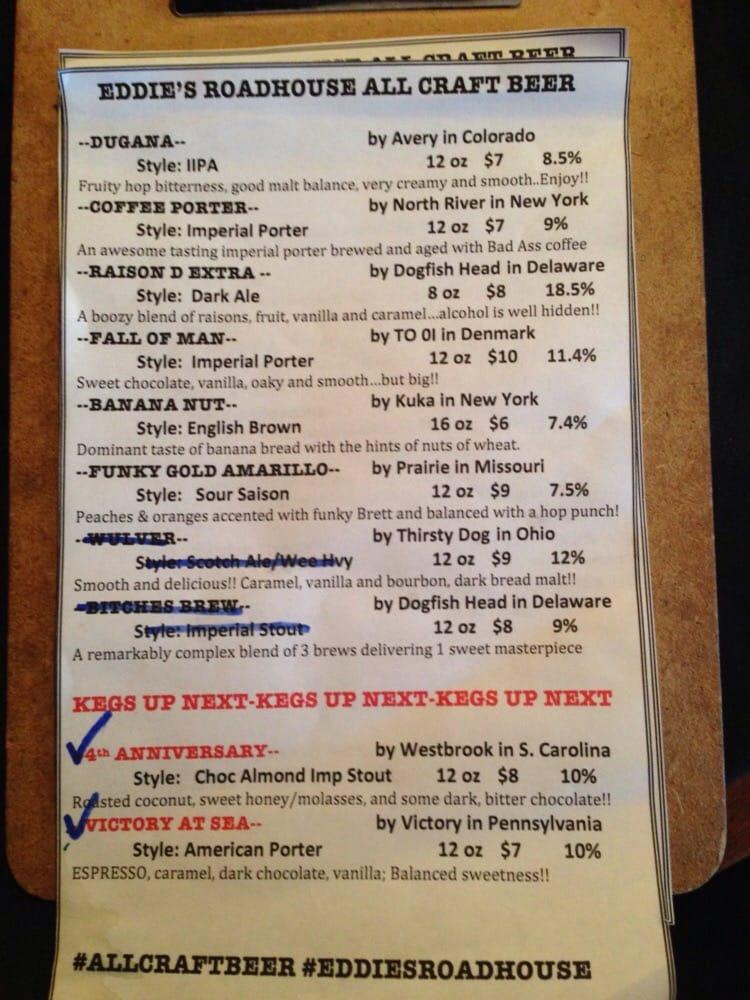 ALL CRAFT BEER
EDDIE'S ROADHOUSE ALL CRAFT BEER
--DUGANA-- by Avery in Colorado
Style: IIPA 12 oz $7 8.5%
Fruity hop bitterness, good malt balance, very creamy and smooth..Enjoy!!
--COFFEE PORTER-- by North River in New York
Style: Imperial Porter 12 oz $7 9%
An awesome tasting imperial porter brewed and aged with Bad Ass coffee
--RAISON D EXTRA -- by Dogfish Head in Delaware
Style: Dark Ale 8 oz $8 18.5%
A boozy blend of raisons, fruit, vanilla and caramel...alcohol is well hidden!!
--FALL OF MAN-- by TO 0l in Denmark
Style: Imperial Porter 12 oz $10 11.4%
Sweet chocolate, vanilla, oaky and smooth...but big!!
--BANANA NUT-- by Kuka in New York
Style: English Brown 16 oz $6 7.4%
Dominant taste of banana bread with the hints of nuts of wheat.
--FUNKY GOLD AMARILLO-- by Prairie in Missouri
Style: Sour Saison 12 oz $9 7.5%
Peaches & oranges accented with funky Brett and balanced with a hop punch!
--WULVER-- by Thirsty Dog in Ohio
Style: Scotch Ale/Wee Hvy 12 oz $9 12%
Smooth and delicious!! Caramel, vanilla and bourbon, dark bread malt!!
--BITCHES BREW-- by Dogfish Head in Delaware
Style: Imperial Stout 12 oz $8 9%
A remarkably complex blend of 3 brews delivering 1 sweet masterpiece
KEGS UP NEXT-KEGS UP NEXT-KEGS UP NEXT
4th ANNIVERSARY-- by Westbrook in S. Carolina
Style: Choc Almond Imp Stout 12 oz $8 10%
Roasted coconut, sweet honey/molasses, and some dark, bitter chocolate!!
VICTORY AT SEA-- by Victory in Pennsylvania
Style: American Porter 12 oz $7 10%
ESPRESSO, caramel, dark chocolate, vanilla; Balanced sweetness!!
#ALLCRAFTBEER #EDDIESROADHOUSE